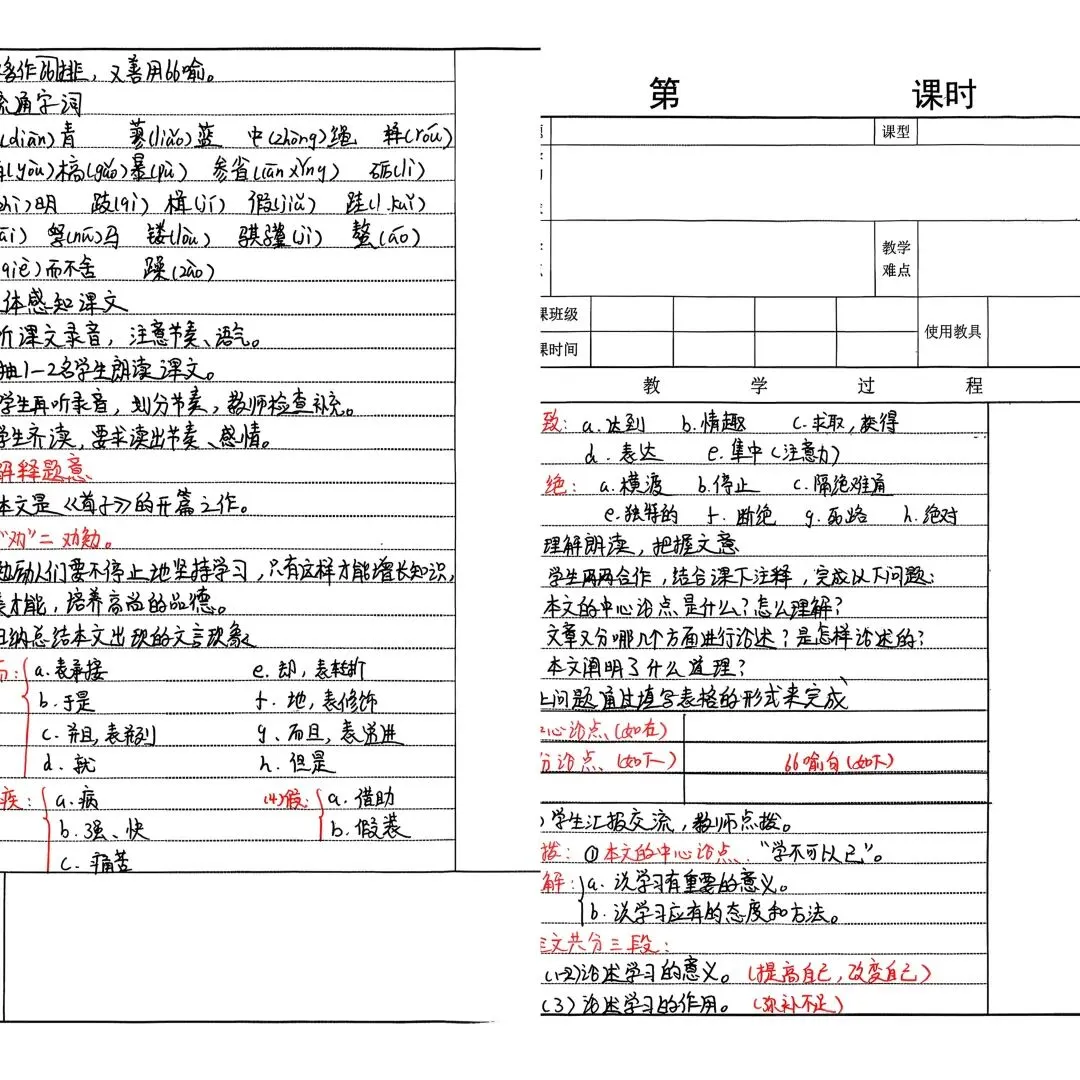 作比排，又善用比喻。
疏通字词
(diān)青 蓼(liǎo)蓝 中(zhòng)绳 輮(róu)
(yòu)槁(gǎo)暴(pù) 参省(cān xǐng) 砺(lì)
明 跂(qì) 楫(jí) 假(jiǎ) 跬(kuǐ)
驽(nú)马 镂(lòu) 骐骥(jì) 螯(áo)
(qiè)而不舍 躁(zào)
体感知课文
听课文录音，注意节奏、语气。
抽1-2名学生朗读课文。
学生再听录音，划分节奏，教师检查补充。
学生齐读，要求读出节奏、感情。
解释题意
本文是《荀子》的开篇之作。
"劝"=劝勉。
励人们要不停止地坚持学习，只有这样才能增长知识，
才能，培养高尚的品德。
归纳总结本文出现的文言现象
而： a.表承接 e.却，表转折
b.于是 f.地，表修饰
c.并且，表并列 g.而且，表递进
d.就 h.但是
疾： a.病 (4)假： a.借助
b.强、快 b.假装
c.痛苦
第 课时
课型
教学
难点
课班级
使用教具
课时间
教 学 过 程
致： a.达到 b.情趣 c.求取，获得
d.表达 e.集中(注意力)
绝： a.横渡 b.停止 c.隔绝难通
e.独特的 f.断绝 g. h.绝对
理解朗读，把握文意
学生两两合作，结合课下注释，完成以下问题：
本文的中心论点是什么？怎么理解？
文章又分哪几个方面进行论述？是怎样论述的？
本文阐明了什么道理？
上问题通过填写表格的形式来完成
中心论点(如右)
分论点(如下) 比喻句(如下)
学生汇报交流，教师点拨。
拨：①本文的中心论点："学不可以已"。
解： a.说学习有重要的意义。
b.说学习应有的态度和方法。
全文共分三段：
(1-2)论述学习的意义。(提高自己，改变自己)
(3)论述学习的作用。(弥补不足)